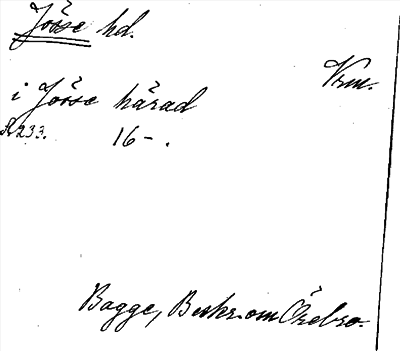 Jösse hd.
Vrm.
i Jösse härad
s. 233. 16-.
Bagge, Beskr. om Örebro.